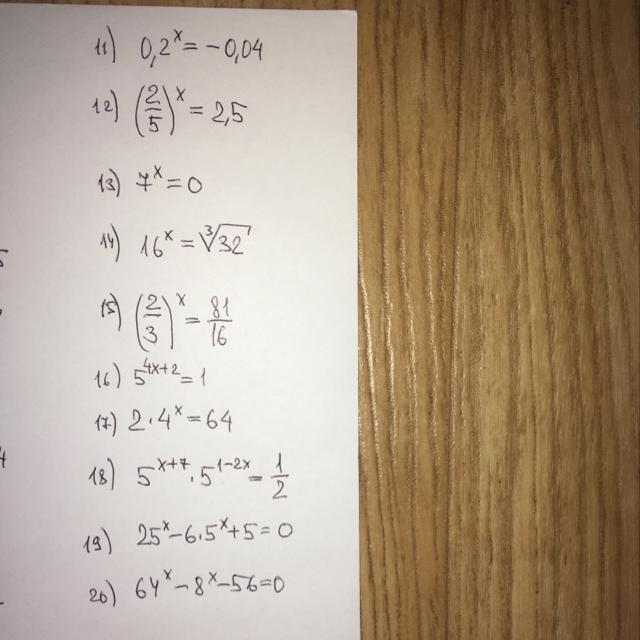 11) 0,2^x = -0,04
12) (2/5)^x = 2,5
13) 7^x = 0
14) 16^x = ∛32
15) (2/3)^x = 81/16
16) 5^(4x+2) = 1
17) 2·4^x = 64
18) 5^(x+7)·5^(1-2x) = 1/2
19) 25^x - 6·5^x + 5 = 0
20) 64^x - 8^x - 56 = 0